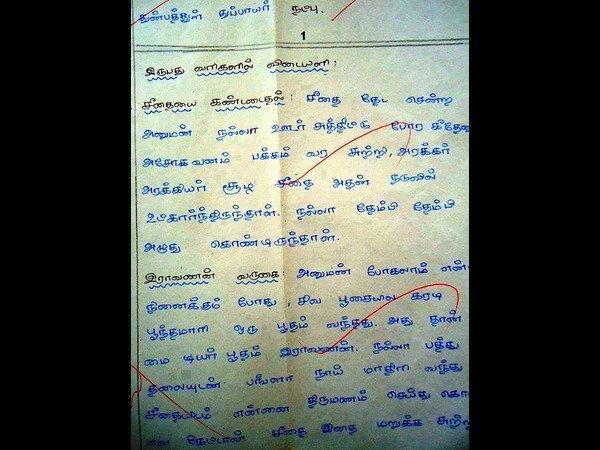 துன்பத்துள் துப்பாயர் நட்பு.
1
இருபது வரிகளில் விடையளி :
சீதையை கண்டதல் : சீதை தேட சென்ற
அனுமன் நல்லா ஊர் சுத்திட்டு போர
அசோகவனம் பக்கம் வர சுற்றி, அரக்கர்
அரக்கியர் சூழ சீதை அதன் நடுவில்
உட்கார்ந்திருந்தாள். நல்லா தேம்பி தேம்பி
அழுது கொண்டிருந்தாள்.
இராவணன் வருகை : அனுமன் போகலாம் என
நினைத்தம் போது, சிவ பூசையில கரடி
பூந்தமாரி ஒரு பூதம் வந்தது. அது தான்
மை டியர் பூதம் இராவணன். நல்லா பத்து
தலையுடன் பங்ளா நாய் மாதிரி வந்து
சீதையிடம் என்னை திருமணம் செய்து கொ
என கேட்டான் சீதை இதை மறுக்க சுற்றி